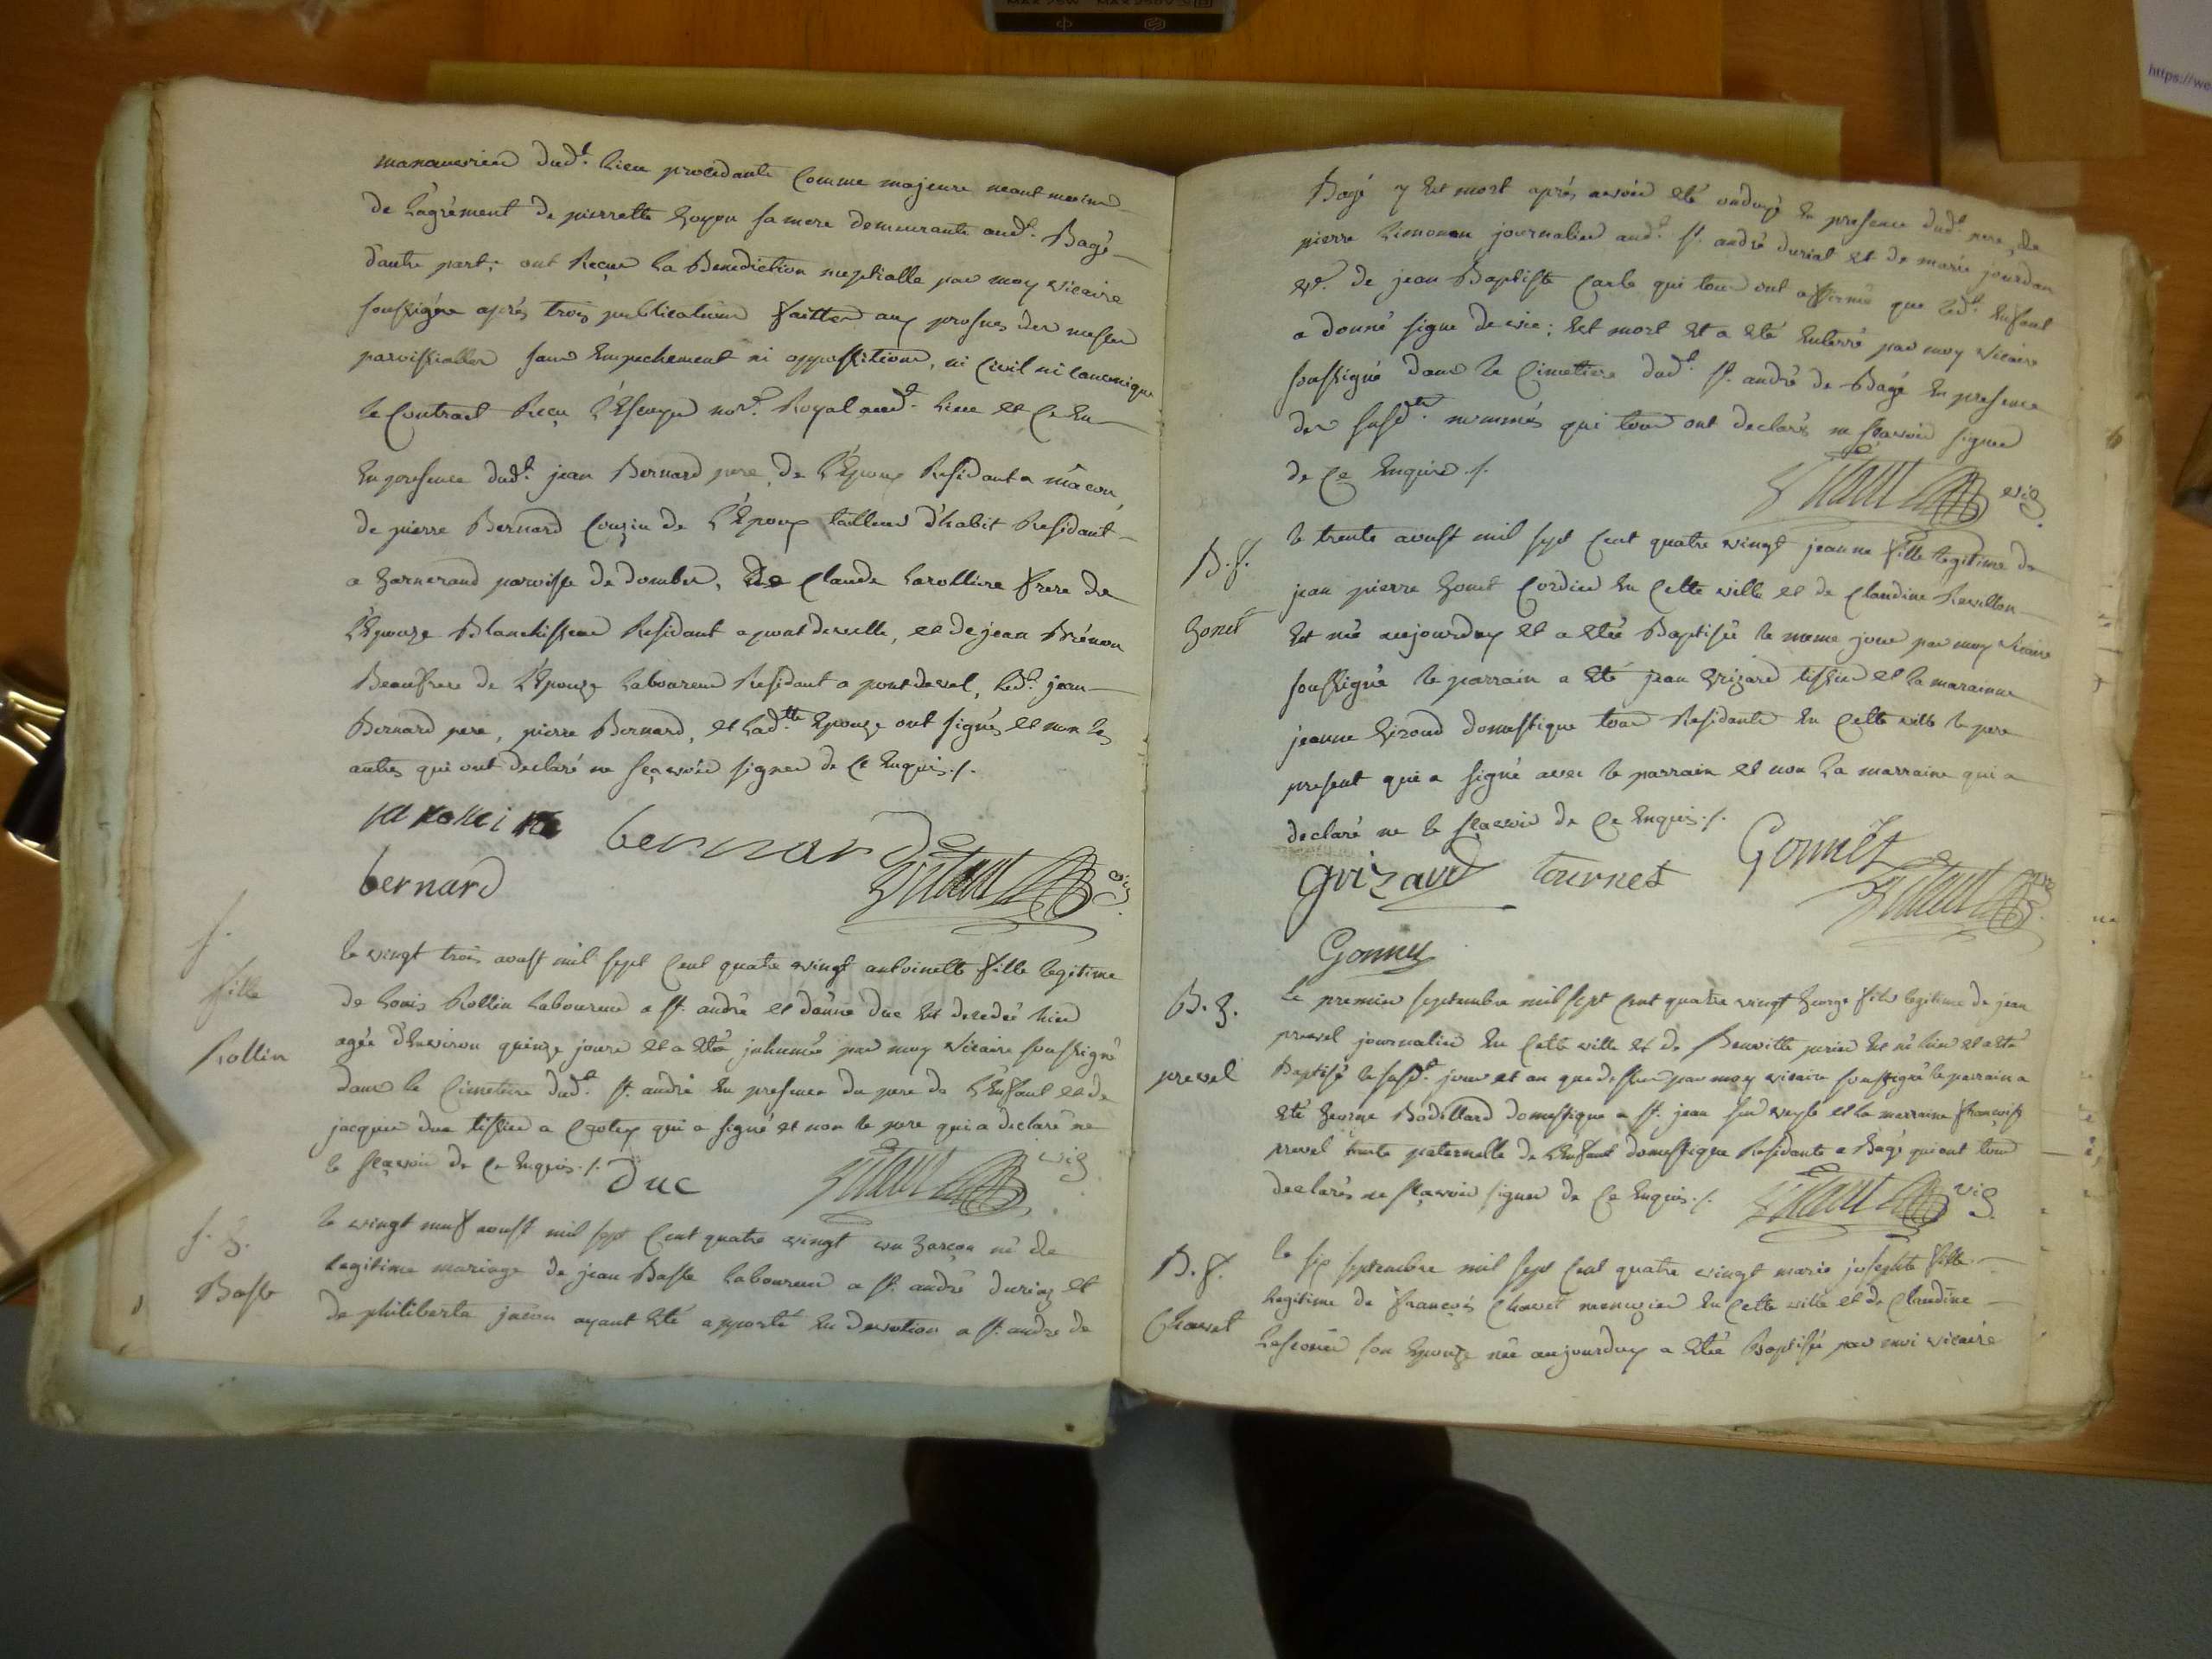 manouvrier dud.t lieu procedante comme majeure neant moins
de l'agrément de pierrette goyon sa mere demeurante aud.t Bagé
d'autre part; ont Reçue la Benediction nuptialle par moy vicaire
soussigné après trois publications faittes aux prosnes des messes
paroissialles sans Empechement ni oppossitions, ni Civil ni canonique
le Contract Reçu not.e Royal aud.t lieu et Ce En
En presence dud.t jean Bernard pere de l'Epoux Residant a mâcon,
de pierre Bernard Couzin de l'Epoux tailleur d'habit Residant
a garnerand paroisse de dombes, de Claude Larolliere frere de
l'Epouze Blanchisseur Residant a pont de velle, et de jean
Beaufrere de l'Epouze Laboureur Residant a pont de vel, led.t jean
Bernard pere, pierre Bernard, et lad.tte Epouze ont signés et non les
autres qui ont declaré ne sçavoir signer de Ce Enquis ./.
bernard
bernard
vic.
f.
fille
Rollin
le vingt trois aoust mil sept Cent quatre vingt antoinette fille legitime
de Louis Rollin Laboureur a St. andré et d'anne duc Est decedée hier
agée d'Environ quinze jours et a Eté inhumée par moy vicaire soussigné
dans le Cimetiere dud.t St. andré En presence du pere de l'Enfant et de
jacques duc tissier a qui a signé et non le pere qui a declaré ne
le sçavoir de Ce Enquis ./. Duc
vic.
f. g.
Basse
le vingt neuf aoust mil sept Cent quatre vingt un garçon né de
legitime mariage de jean Basse Laboureur a St. andré duriaz et
de philiberte ayant Eté apporté En devotion a St. andré de
Bagé y Est mort après avoir Eté ondoyé En presence dud.t pere, de
pierre Limonon journalier aud.t St. andré duriat et de marie jourdan
ve. de jean Baptiste Carle qui tous ont affirmé que led.t Enfant
a donné signe de vie; Est mort Et a Eté Enterré par moy vicaire
soussigné dans le Cimetiere dud.t St. andré de Bagé En presence
des susd.ts nommés qui tous ont declarés ne sçavoir signer
de Ce Enquis ./.
vic.
B. f.
Gonet
le trente aoust mil sept Cent quatre vingt jeanne fille legitime de
jean pierre Gonet Cordier En Cette ville et de Claudine Revillon
Est née aujourduy et a Etée Baptisée le meme jour par moy vicaire
soussigné le parrain a Eté jean Grizard tissier et la maraine
jeanne Giroud domestique tous Residants En Cette ville le pere
present qui a signé avec le parrain et non la marraine qui a
declaré ne le sçavoir de Ce Enquis ./.
Gonnet
Grizard tournet
Gonnet
B. g.
prevel
le premier septembre mil sept Cent quatre vingt George fils legitime de jean
prevel journalier En Cette ville et de Benoitte perier Est né hier et a Eté
Baptisé le susd.t jour et an que dessus par moy vicaire soussigné le parrain a
Eté George Bodillard domestique a St. jean sur veyle et la marraine francoise
prevel tante paternelle de l'Enfant domestique Residante a Bagé qui ont tous
declarés ne sçavoir signer de Ce Enquis ./.
vic.
B. f.
Chavet
le six septembre mil sept Cent quatre vingt marie josephte fille
legitime de francois Chavet menuzier En Cette ville et de Claudine
son Epouze née aujourduy a Etée Baptisée par moi vicaire
https://we